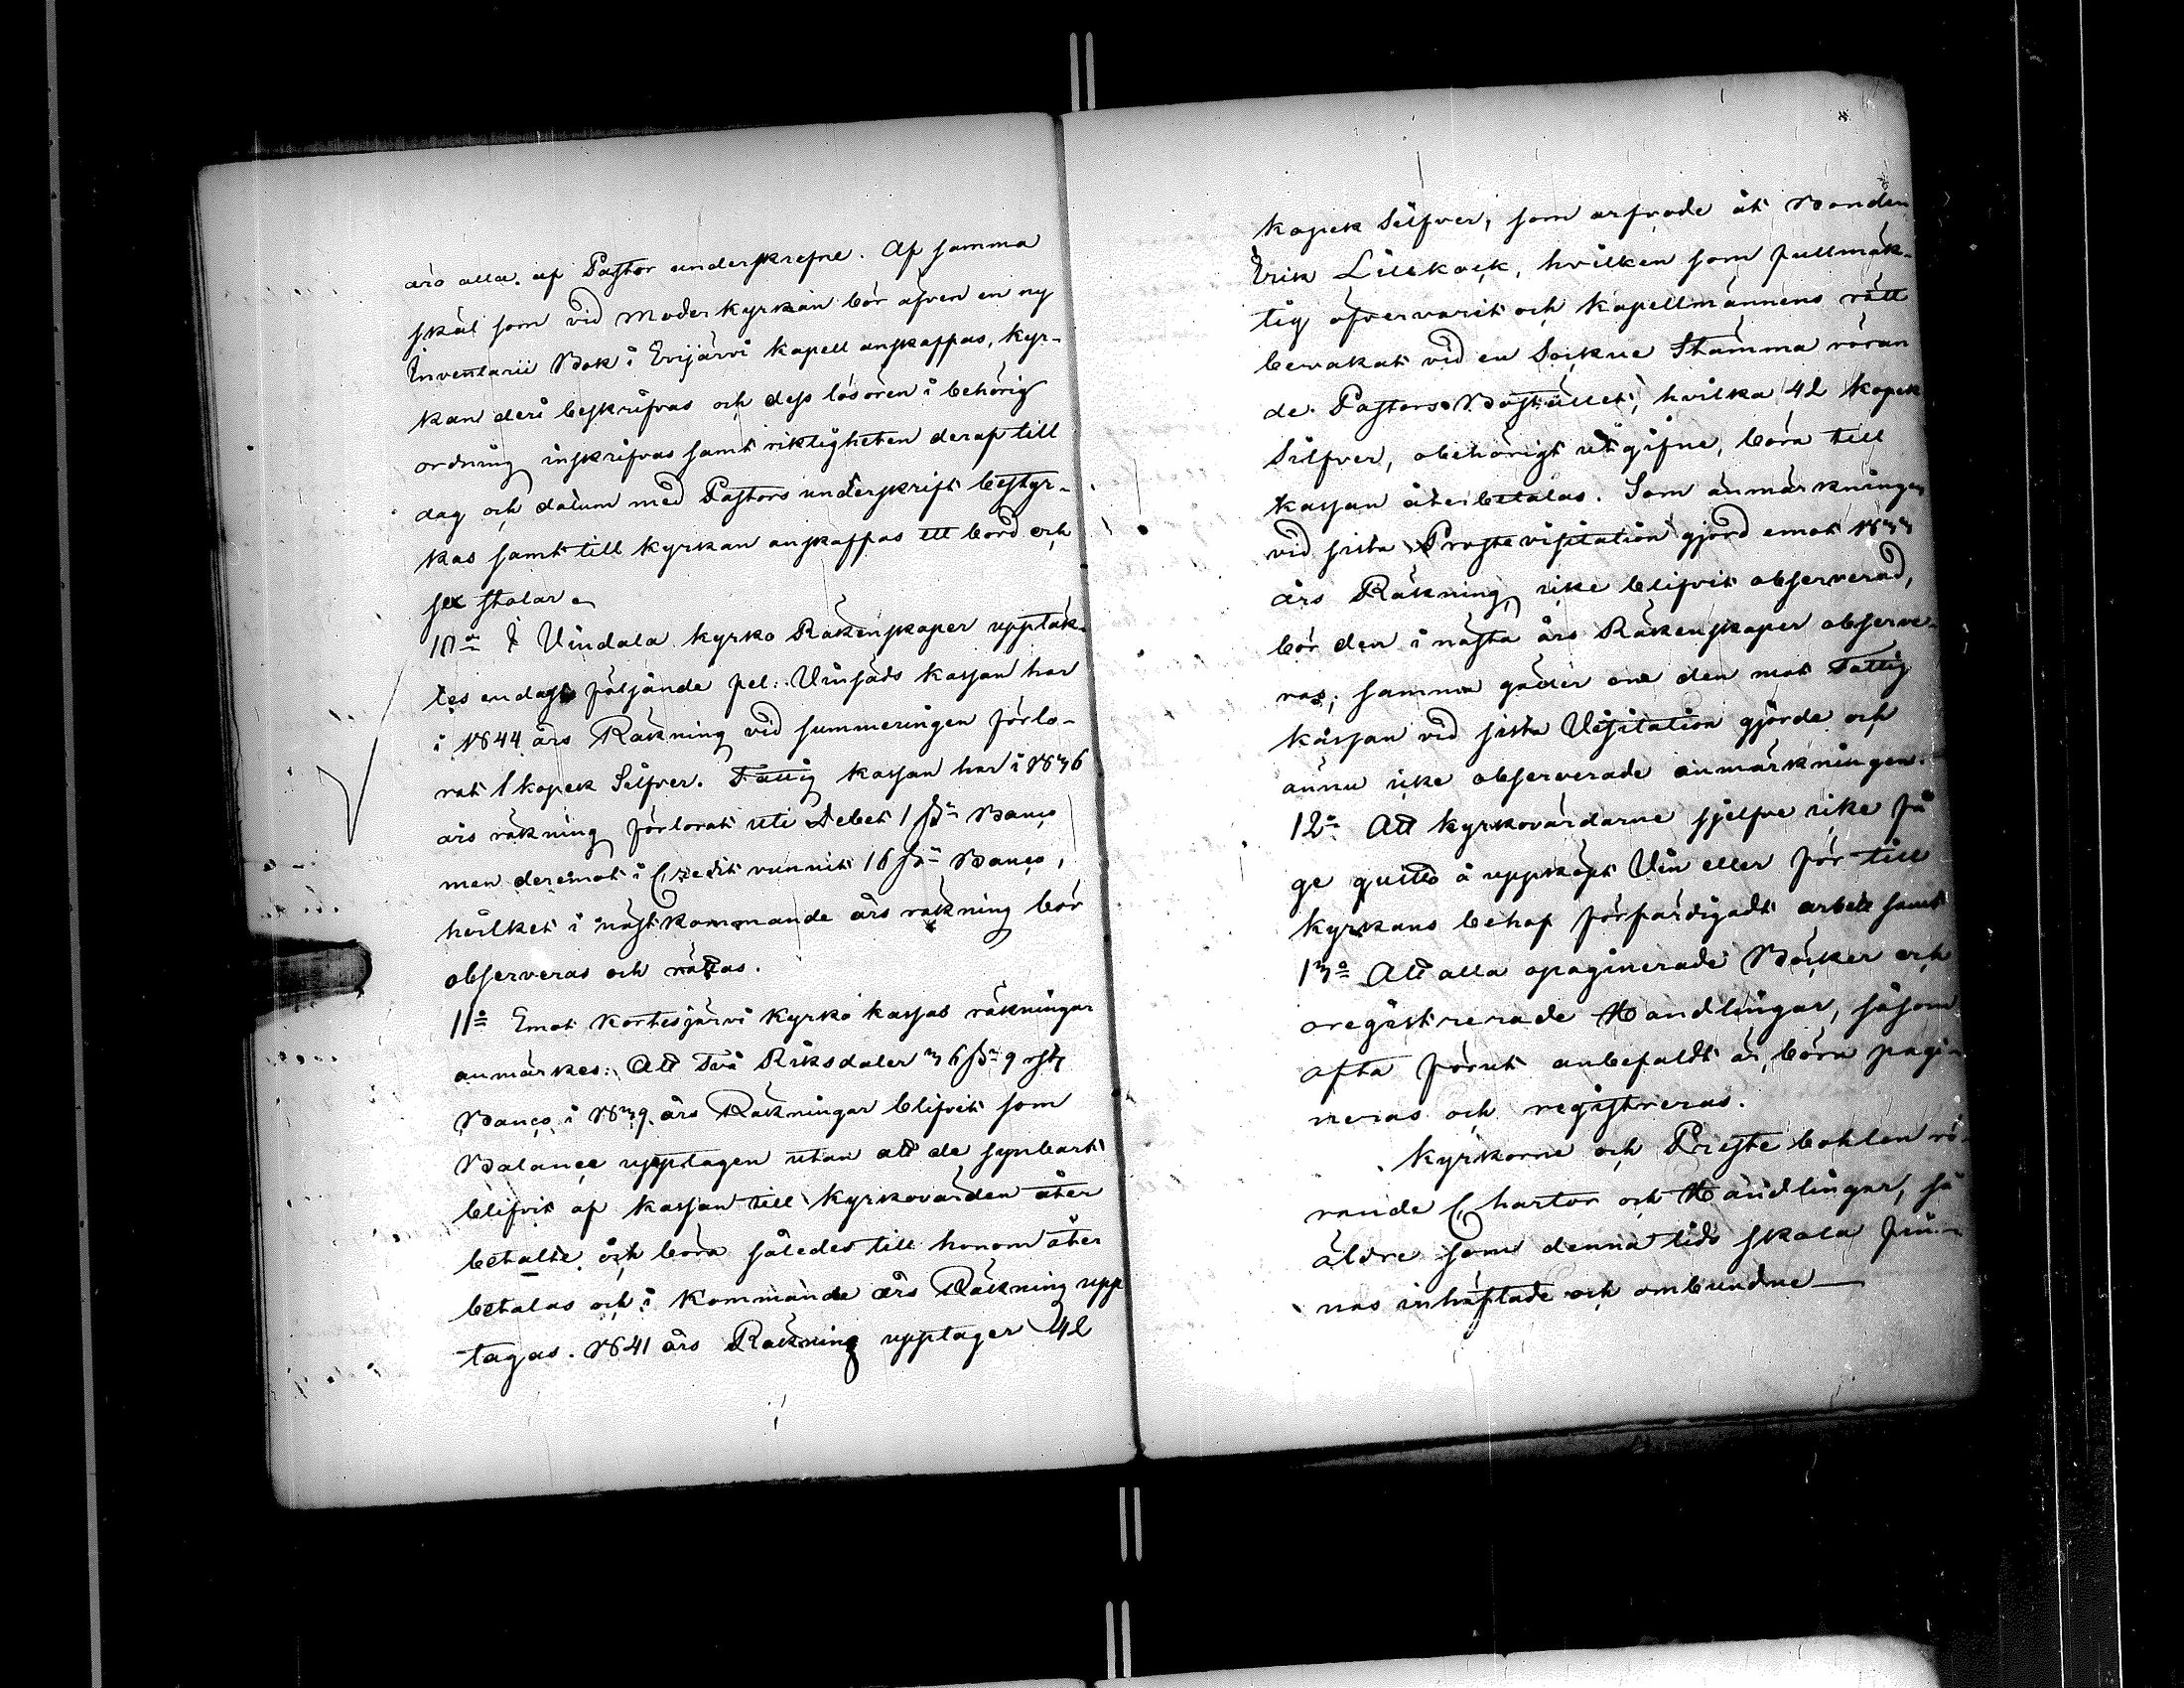 äro alla af Pastor underskrefne. Af samma
skäl som vid Moderkyrkan bör äfven en ny
Inventarii Bok i Evijärvi kapell anskaffas, kyr-
kan deri beskrifvas och dess lösören i behörig
ordning inskrifvas samt riktigheten deraf till
dag och datum med Pastors underskrift bestyr-
kas samt till kyrkan anskaffas ett bord och
sex stolar.
10o I Vindala kyrko Räkenskaper upptäk-
tes endast följande fel: Vinsäds kassan har
i 1844 års Räkning vid summeringen förlo-
rat 1 kopek Silfver. Fattig kassan har i 1836
års räkning förlorat uti Debet 1 ss Banco
men deremot i Credit vunnit 16 ss Banco,
hvilket i nästkommande års räkning bör
observeras och rättas.
11o Emot Kortesjärvi kyrko kassas räkningar
anmärkes: Att Två Riksdaler 36 ss 9 rst
Banco i 1839 års Räkningar blifvit som
Balance upptagen utan att de synbart
blifvit af kassan till kyrkovärden åter
betalte och böra således till honom åter
betalas och i kommande års Räkning upp
tagas. 1841 års Räkning upptager 42
kopek Silfver, som arfvode åt Bonden
Erik Lillkock, hvilken som fullmäk-
tig öfvervarit och kapellmännens rätt
bevakat vid en Sockne Stämma röran
de Pastors Bostället, hvilka 42 kopek
Silfver, obehörigt utgifne, böra till
kassan återbetalas. Som anmärkningen
vid sista Prostevisitation gjord emot 1833
års Räkning icke blifvit observerad,
bör den i nästa års Räkenskaper observe-
ras; samma gäller om den mot Fattig
kassan vid sista Visitation gjorde och
ännu icke observerade anmärkningen.
12o Att kyrkovärdarne sjelfve icke få
ge quitto å uppköpt Vin eller för till
kyrkans behof förfärdigadt arbete samt
13o Att alla opaginerade Böcker och
oregistrerade Handlingar, såsom
ofta förut anbefaldt är, böra pagi-
neras och registreras.
Kyrkorne och Preste bohlen rö-
rande Chartor och Handlingar, så
äldre som denna tids skola fin-
nas inhäftade och ombundne